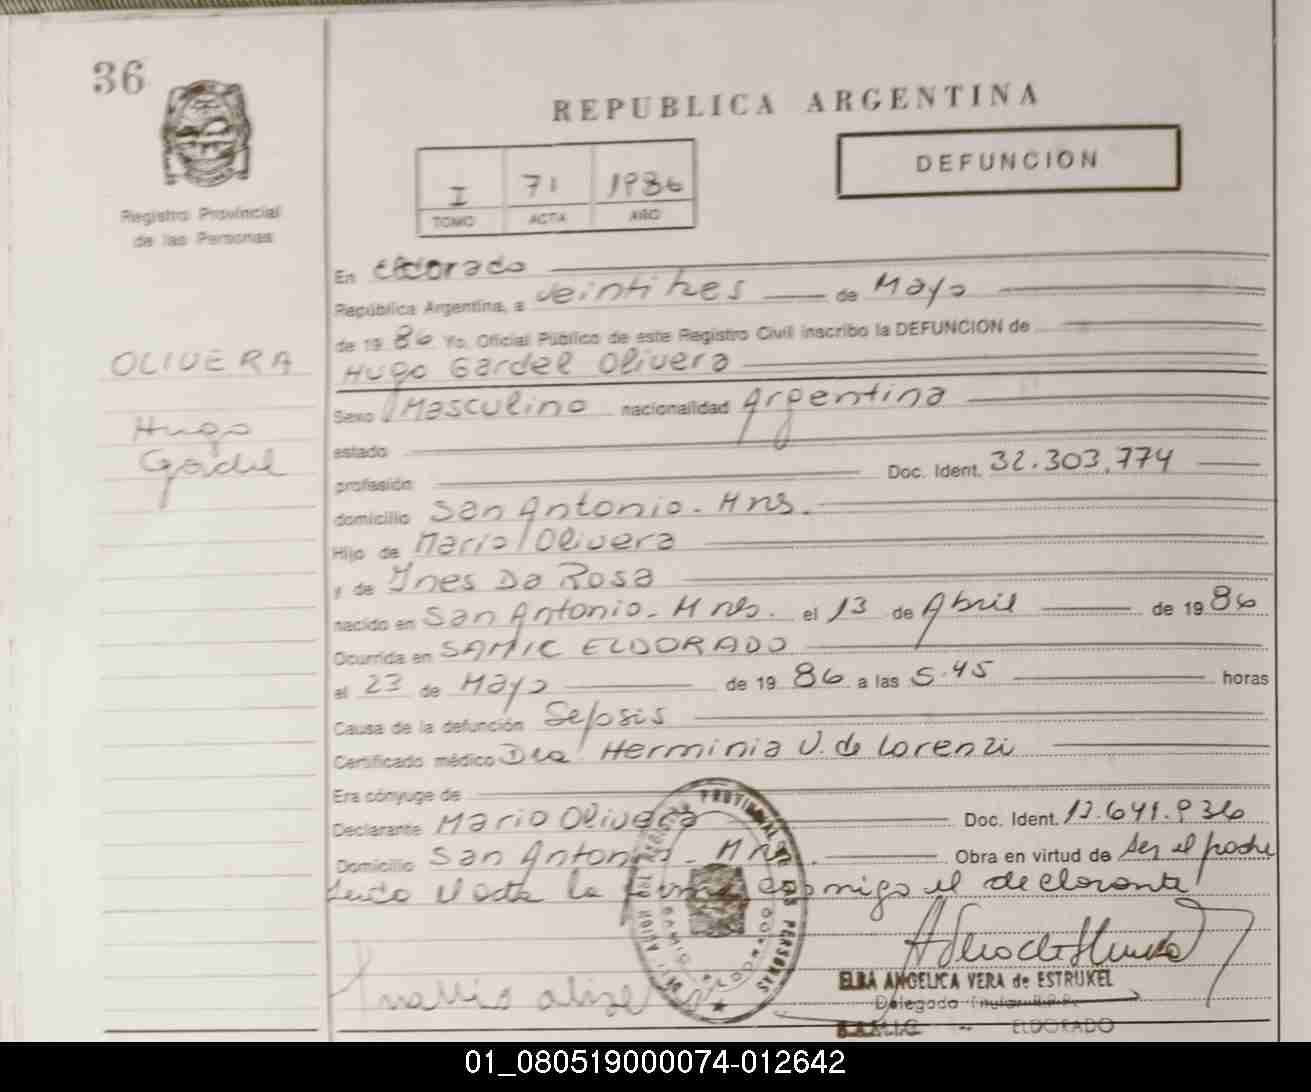 36
REPUBLICA ARGENTINA
DEFUNCION
I 71 1986
TOMO ACTA AÑO
Registro Provincial
de las Personas
OLIVERA
Hugo
Gardel
En Eldorado
República Argentina, a veintitres de Mayo
de 19 86 Yo, Oficial Público de este Registro Civil inscribo la DEFUNCION de
Hugo Gardel Olivera
Sexo Masculino nacionalidad Argentina
estado
profesión Doc. Ident. 32.303.774
domicilio San Antonio - Mns.
Hijo de Mario Olivera
y de Ynes Da Rosa
nacido en San Antonio - Mnes. el 13 de Abril de 19 86
Ocurrida en SAMIC ELDORADO
el 23 de Mayo de 19 86 a las 5.45 horas
Causa de la defunción Sepsis
Certificado médico Dra. Herminia V. de Lorenzi
Era cónyuge de
Declarante Mario Olivera Doc. Ident. 12.641.936
Domicilio San Antonio - Mns. Obra en virtud de ser el padre
leido el acta la firma conmigo el declarante
ELBA ANGELICA VERA de ESTRUKEL
Delegado Titular R.P.
S.A.M.I.C. - ELDORADO
01_080519000074-012642